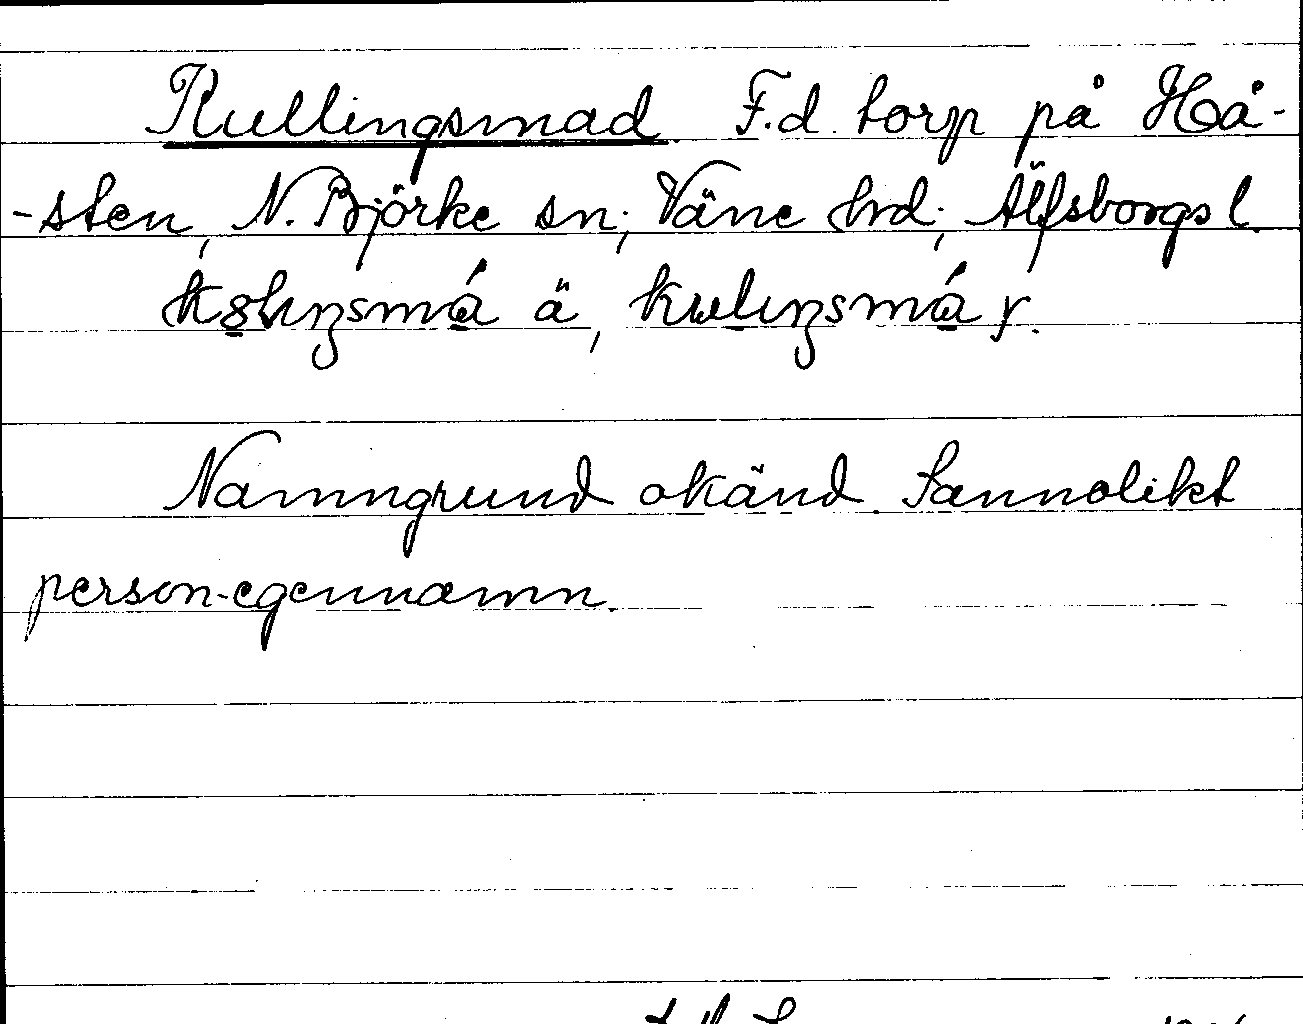 Kullingsmad F.d. torp på Hå-
-sten, N. Björke sn; Väne hrd; Älfsborgs l.
kølıŋsmá ä, kulıŋsmá y.
Namngrund okänd. Sannolikt
person-egennamn.